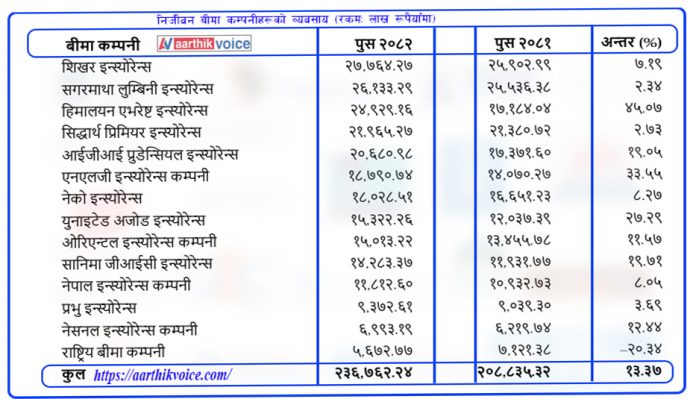 निर्जीवन बीमा कम्पनीहरूको व्यवसाय (रकमः लाख रूपैयाँमा)
बीमा कम्पनी AV aarthikvoice पुस २०८२ पुस २०८१ अन्तर (%)
शिखर इन्स्योरेन्स २७,७६४.२७ २५,९०२.९९ ७.१९
सगरमाथा लुम्बिनी इन्स्योरेन्स २६,१३३.२९ २५,५३६.३८ २.३४
हिमालयन एभरेष्ट इन्स्योरेन्स २४,९२९.१६ १७,१८४.०४ ४५.०७
सिद्धार्थ प्रिमियर इन्स्योरेन्स २१,९६५.२७ २१,३८०.७२ २.७३
आईजीआई प्रुडेन्सियल इन्स्योरेन्स २०,६८०.९८ १७,३७१.६० १९.०५
एनएलजी इन्स्योरेन्स कम्पनी १८,७९०.७४ १४,०७०.२७ ३३.५५
नेको इन्स्योरेन्स १८,०२८.५१ १६,६५१.२३ ८.२७
युनाइटेड अजोड इन्स्योरेन्स १५,३२२.२६ १२,०३७.३९ २७.२९
ओरिएन्टल इन्स्योरेन्स कम्पनी १५,०१३.२२ १३,४५५.७८ ११.५७
सानिमा जीआईसी इन्स्योरेन्स १४,२८३.३७ ११,९३१.७७ १९.७१
नेपाल इन्स्योरेन्स कम्पनी ११,८१२.६० १०,९३२.७३ ८.०५
प्रभु इन्स्योरेन्स ९,३७२.६१ ९,०३९.३० ३.६९
नेसनल इन्स्योरेन्स कम्पनी ६,९९३.१९ ६,२१९.७४ १२.४४
राष्ट्रिय बीमा कम्पनी ५,६७२.७७ ७,१२१.३८ –२०.३४
कुल https://aarthikvoice.com/ २३६,७६२.२४ २०८,८३५.३२ १३.३७